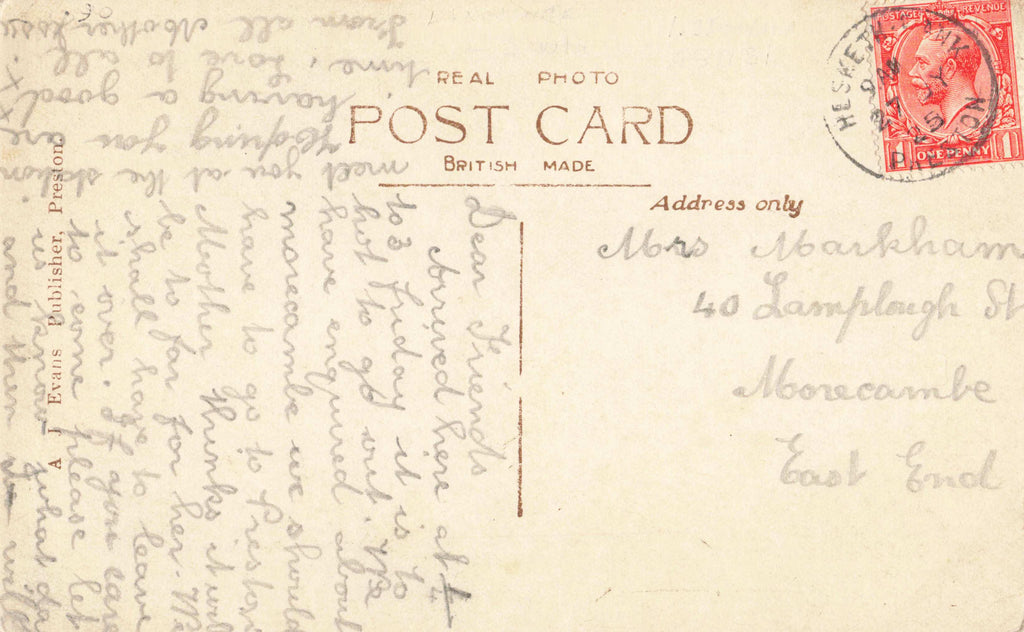 REAL PHOTO
POST CARD
BRITISH MADE
Address only
POSTAGE REVENUE
ONE PENNY
1 1
HESKETH BANK
PRESTON
Mrs Markham
40 Lamplough St
Morecambe
East End
Dear Friends
Arrived here at ¼
to 3 friday it is to
hot to go out. We
have enquired about
morecambe we should
have to go to Preston
Mother thinks it will
be to far for her. We
shall have to leave
it over. If you care
to come please let
us know what day
and then we will
meet you at the station.
Hoping you are
having a good
time, Love to all
From all Mother
A J Evans Publisher, Preston.